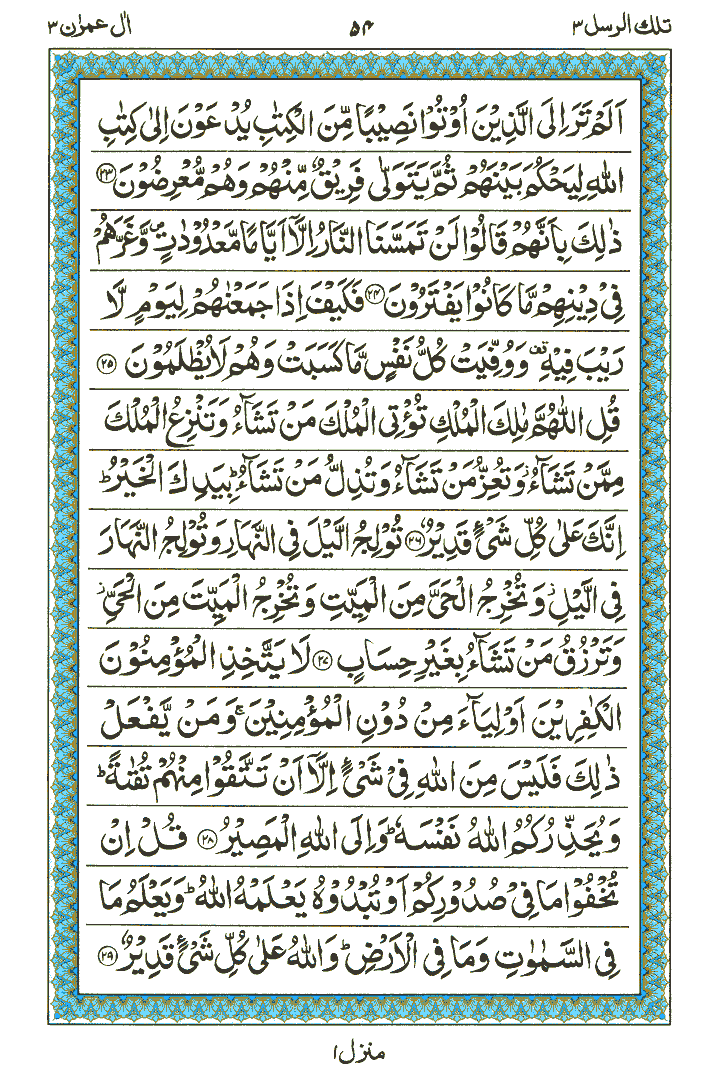 تلك الرسل ٣ ٥٤ اٰل عمرٰن ٣
اَلَمْ تَرَ اِلَى الَّذِيْنَ اُوْتُوْا نَصِيْبًا مِّنَ الْكِتٰبِ يُدْعَوْنَ اِلٰى كِتٰبِ
اللّٰهِ لِيَحْكُمَ بَيْنَهُمْ ثُمَّ يَتَوَلّٰى فَرِيْقٌ مِّنْهُمْ وَهُمْ مُّعْرِضُوْنَ ﴿٢٣﴾
ذٰلِكَ بِاَنَّهُمْ قَالُوْا لَنْ تَمَسَّنَا النَّارُ اِلَّاۤ اَيَّامًا مَّعْدُوْدٰتٍ ۪ وَّغَرَّهُمْ
فِيْ دِيْنِهِمْ مَّا كَانُوْا يَفْتَرُوْنَ ﴿٢٤﴾ فَكَيْفَ اِذَا جَمَعْنٰهُمْ لِيَوْمٍ لَّا
رَيْبَ فِيْهِ ۫ وَوُفِّيَتْ كُلُّ نَفْسٍ مَّا كَسَبَتْ وَهُمْ لَا يُظْلَمُوْنَ ﴿٢٥﴾
قُلِ اللّٰهُمَّ مٰلِكَ الْمُلْكِ تُؤْتِى الْمُلْكَ مَنْ تَشَآءُ وَتَنْزِعُ الْمُلْكَ
مِمَّنْ تَشَآءُ ؗ وَتُعِزُّ مَنْ تَشَآءُ وَتُذِلُّ مَنْ تَشَآءُ ؕ بِيَدِكَ الْخَيْرُ ؕ
اِنَّكَ عَلٰى كُلِّ شَيْءٍ قَدِيْرٌ ﴿٢٦﴾ تُوْلِجُ الَّيْلَ فِي النَّهَارِ وَتُوْلِجُ النَّهَارَ
فِي الَّيْلِ ؗ وَتُخْرِجُ الْحَيَّ مِنَ الْمَيِّتِ وَتُخْرِجُ الْمَيِّتَ مِنَ الْحَيِّ ؗ
وَتَرْزُقُ مَنْ تَشَآءُ بِغَيْرِ حِسَابٍ ﴿٢٧﴾ لَا يَتَّخِذِ الْمُؤْمِنُوْنَ
الْكٰفِرِيْنَ اَوْلِيَآءَ مِنْ دُوْنِ الْمُؤْمِنِيْنَ ۚ وَمَنْ يَّفْعَلْ
ذٰلِكَ فَلَيْسَ مِنَ اللّٰهِ فِيْ شَيْءٍ اِلَّاۤ اَنْ تَتَّقُوْا مِنْهُمْ تُقٰىةً ؕ
وَيُحَذِّرُكُمُ اللّٰهُ نَفْسَهٗ ؕ وَاِلَى اللّٰهِ الْمَصِيْرُ ﴿٢٨﴾ قُلْ اِنْ
تُخْفُوْا مَا فِيْ صُدُوْرِكُمْ اَوْ تُبْدُوْهُ يَعْلَمْهُ اللّٰهُ ؕ وَيَعْلَمُ مَا
فِي السَّمٰوٰتِ وَمَا فِي الْاَرْضِ ؕ وَاللّٰهُ عَلٰى كُلِّ شَيْءٍ قَدِيْرٌ ﴿٢٩﴾
منزل ١